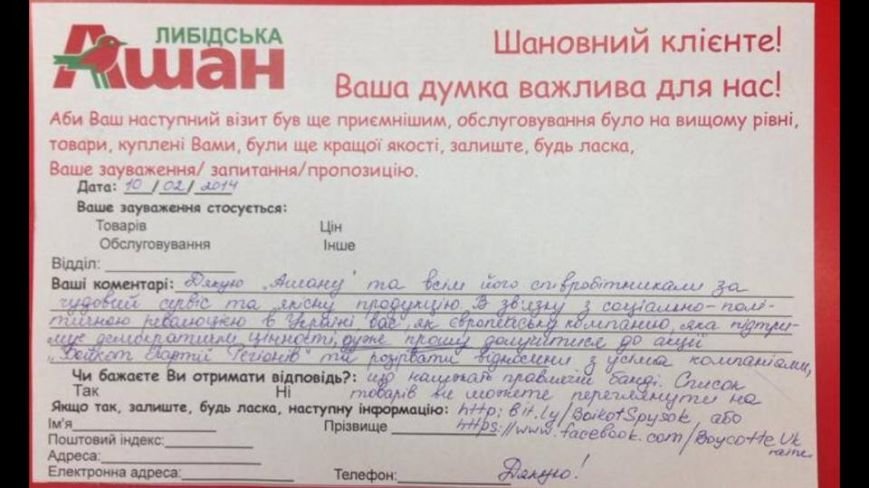 ЛИБІДСЬКА
Ашан
Шановний клієнте!
Ваша думка важлива для нас!
Аби Ваш наступний візит був ще приємнішим, обслуговування було на вищому рівні,
товари, куплені Вами, були ще кращої якості, залиште, будь ласка,
Ваше зауваження/ запитання/пропозицію.
Дата: 10 / 02 / 2014
Ваше зауваження стосується:
Товарів Цін
Обслуговування Інше
Відділ:
Ваші коментарі: Дякую „Ашану" та всім його співробітникам за
чудовий сервіс та якісну продукцію. В зв'язку з соціально-полі-
тичною революцією в Україні вас, як європейську компанію, яка підтри-
мує демократичні цінності, дуже прошу долучитися до акції
„Бойкот Партії Регіонів" та розірвати відносини з усіма компаніями,
Чи бажаєте Ви отримати відповідь?: що належать правлячій банді. Список
Так Ні товарів ви можете переглянути на
Якщо так, залиште, будь ласка, наступну інформацію: http: bit.ly/BoikotSpysok або
Ім'я Прізвище https://www.facebook.com/BoycotteUk
raine
Поштовий індекс:
Адреса:
Електронна адреса: Телефон: Дякую!